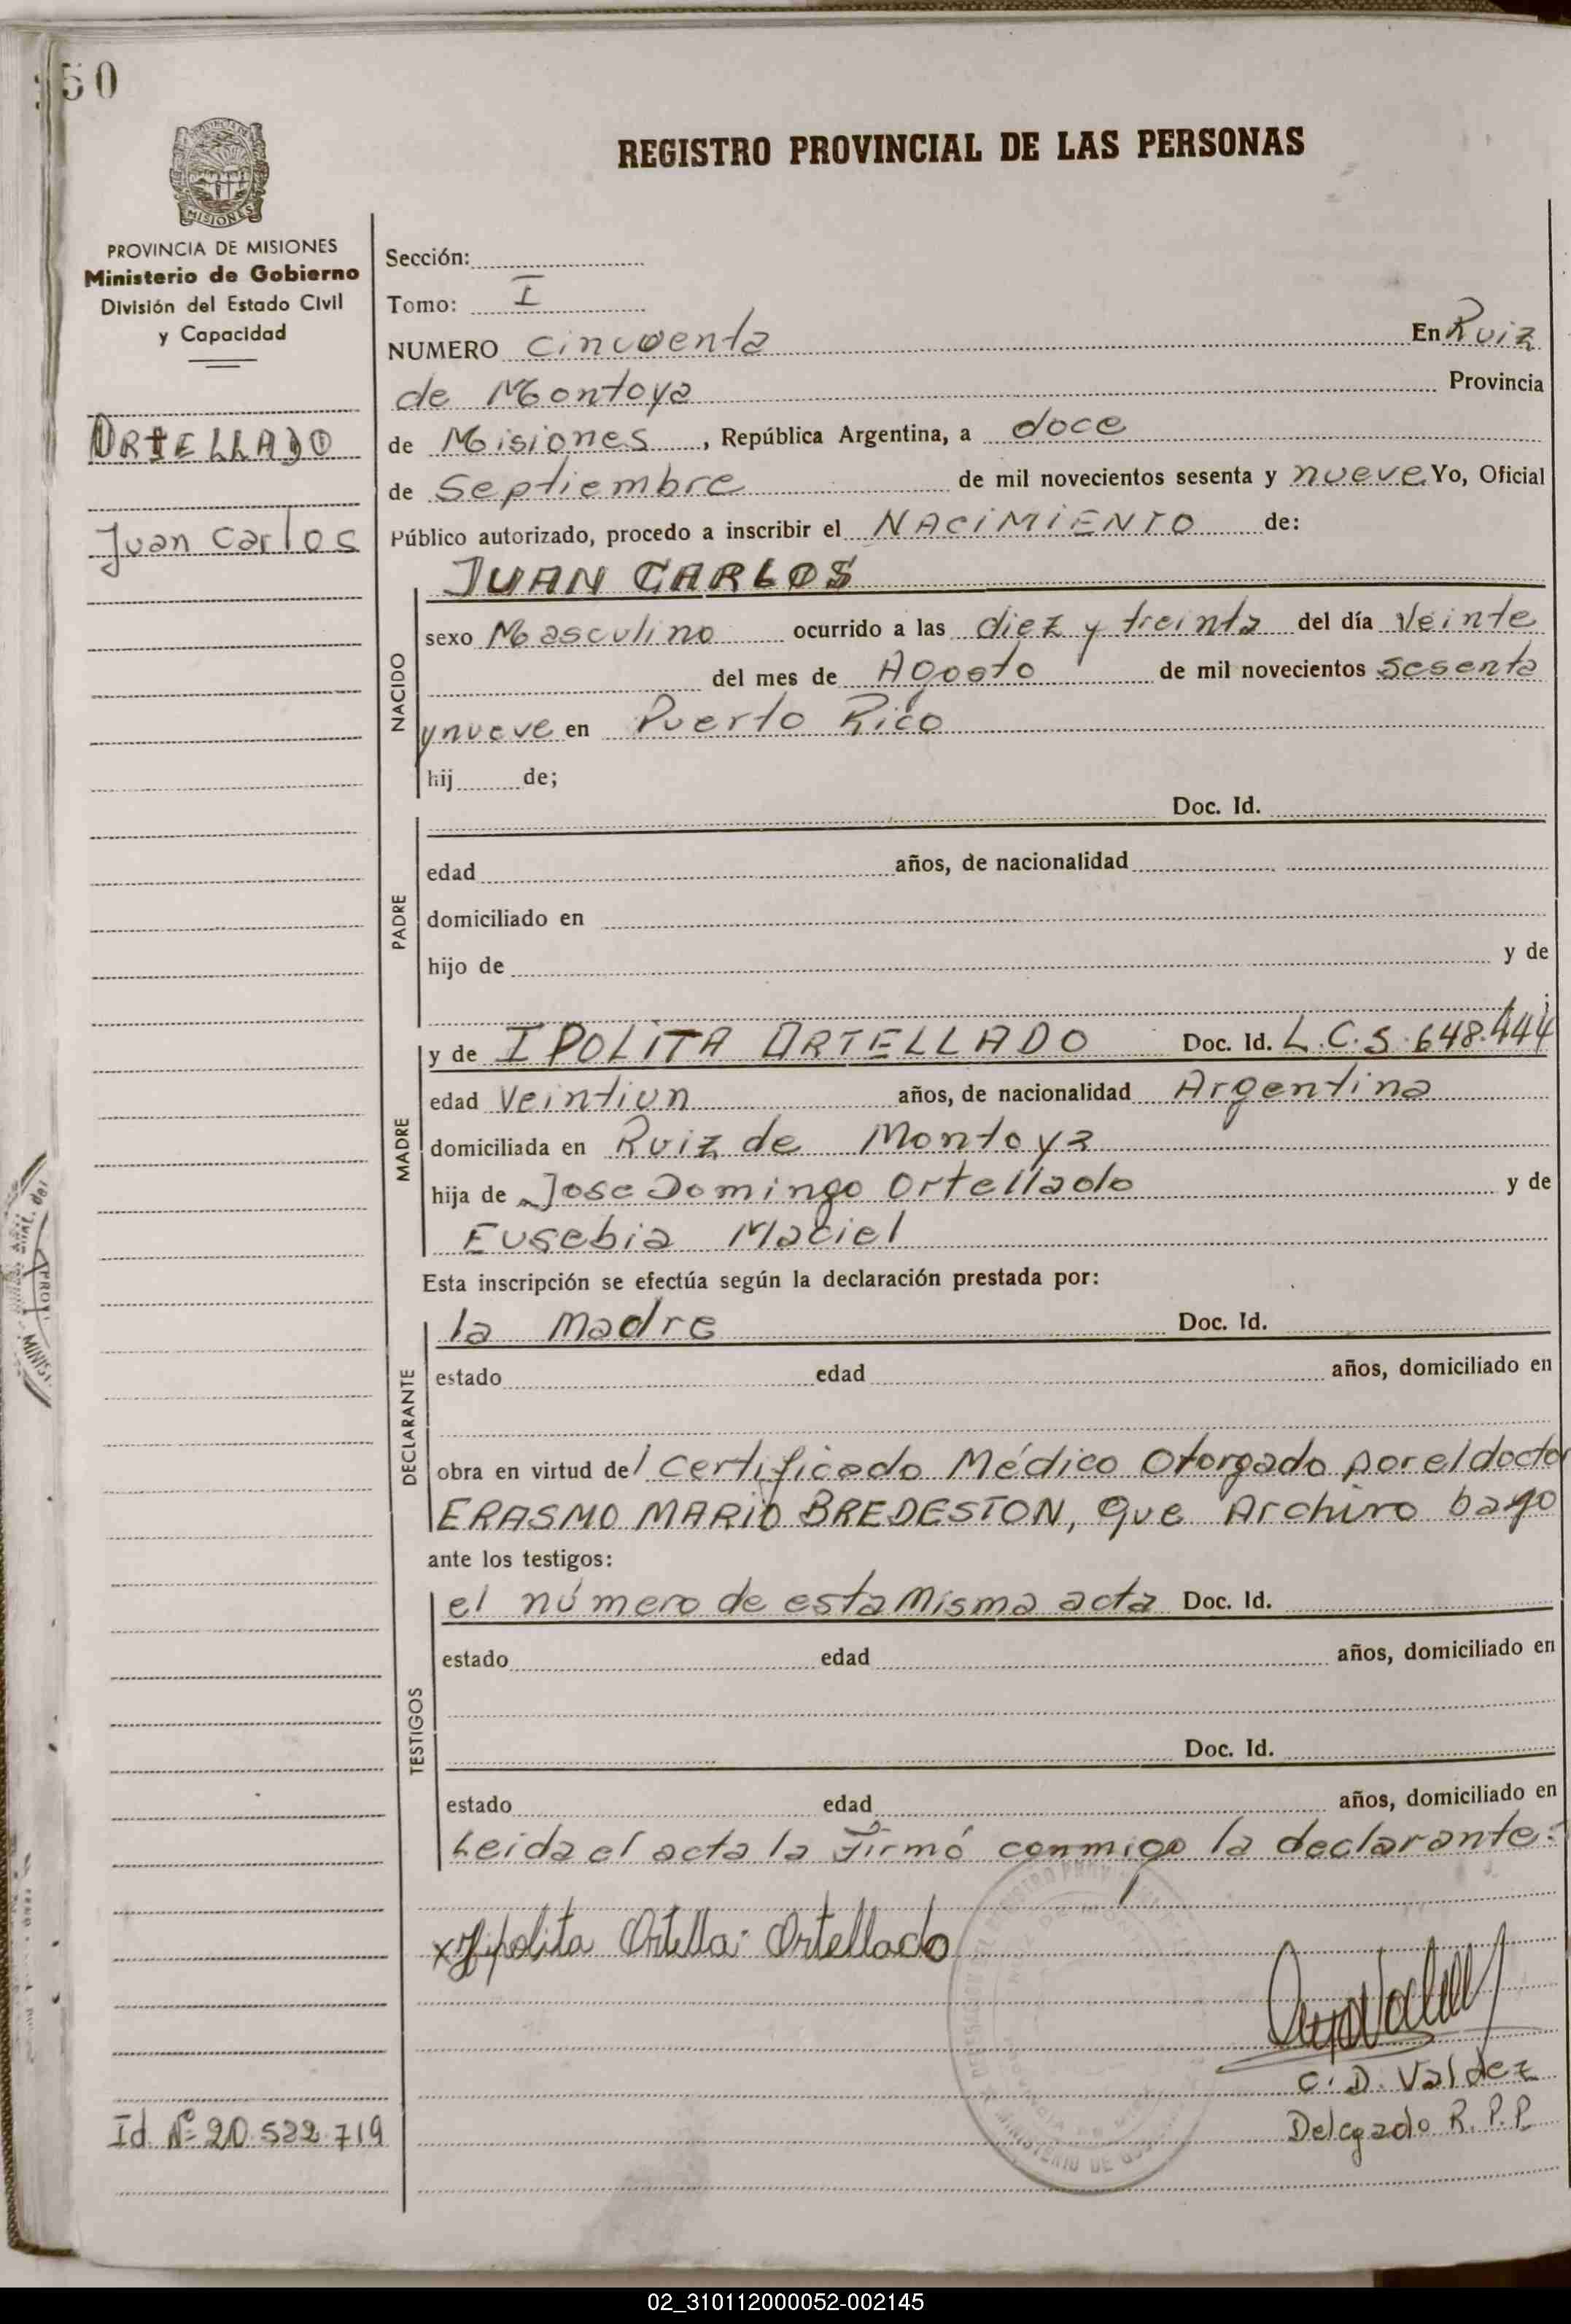 50
REGISTRO PROVINCIAL DE LAS PERSONAS
MISIONES
PROVINCIA DE MISIONES
Ministerio de Gobierno
División del Estado Civil
y Capacidad
ORTELLADO
Juan Carlos
Id Nº 20.522.719
Sección:
Tomo: I
NUMERO cincuenta En Ruiz
de Montoya Provincia
de Misiones, República Argentina, a doce
de Septiembre de mil novecientos sesenta y nueve Yo, Oficial
Público autorizado, procedo a inscribir el NACIMIENTO de:
NACIDO
JUAN CARLOS
sexo Masculino ocurrido a las diez y treinta del día Veinte
del mes de Agosto de mil novecientos sesenta
y nueve en Puerto Rico
hij de;
PADRE
Doc. Id.
edad años, de nacionalidad
domiciliado en
hijo de y de
MADRE
y de IPOLITA ORTELLADO Doc. Id. L.C.5.648.444
edad Veintiun años, de nacionalidad Argentina
domiciliada en Ruiz de Montoya
hija de Jose Domingo Ortellado y de
Eusebia Maciel
Esta inscripción se efectúa según la declaración prestada por:
DECLARANTE
la madre Doc. Id.
estado edad años, domiciliado en
obra en virtud del certificado Médico Otorgado por el doctor
ERASMO MARIO BREDESTON, que Archivo bajo
ante los testigos:
TESTIGOS
el número de esta misma acta Doc. Id.
estado edad años, domiciliado en
Doc. Id.
estado edad años, domiciliado en
Leida el acta la Firmó conmigo la declarante:
x Ypolita Ortella Ortellado
C. D. Valdez
Delegado R.P.P.
02_310112000052-002145